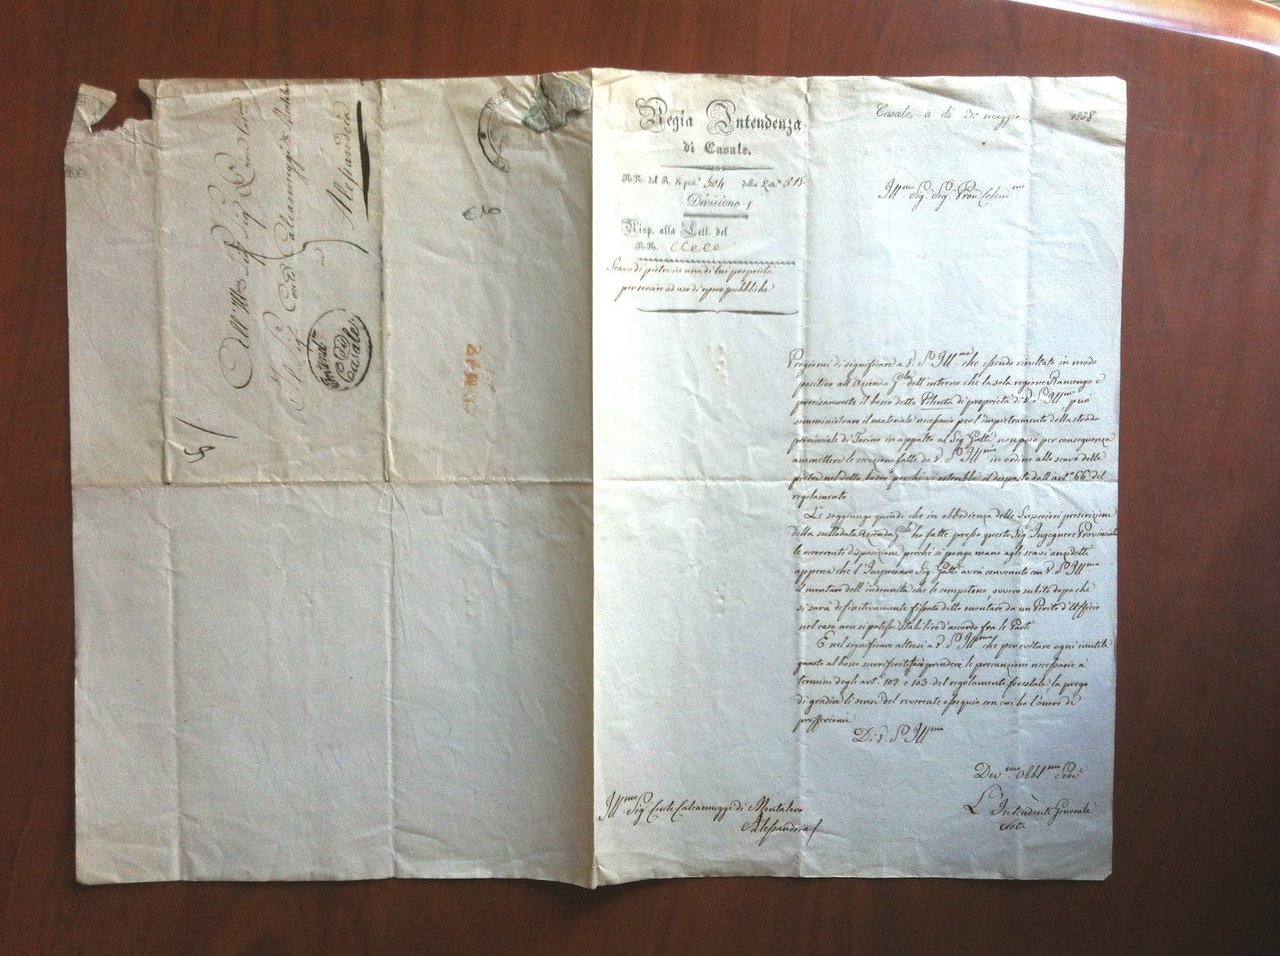 Regia Intendenza
di Casale.
NN. del R. di prot.º 504 della Lett.ª 515
Divisione 1
Risp. alla Lett. del
NN.
Scavo di pietre in una di lui proprietà
per servire ad uso di opere pubbliche
Casale, a dì 30 maggio 1838
Ill.mo Sig. Sig. Pron Col.mo
Pregiomi di significare a V. S. Ill.ma che essendo risultato in modo
positivo all'Azienda G.le dell'interno che la sola regione Ramengo e
precisamente il bosco detto Pilenta di proprietà di V. S. Ill.ma può
somministrare il materiale necessario per l'impietramento della strada
provinciale di Torino in appalto al Sig. Gatti, non può per conseguenza
ammettere le eccezioni fatte da V. S. Ill.ma in ordine allo scavo delle
pietre nel detto bosco perché vi osterebbe il disposto dall'art.º 66 del
regolamento.
Le soggiungo quindi che in obbedienza delle Superiori prescrizioni
della sullodata Azienda G.le ho fatte presso questo Sig. Ingegnere Provinciale
le occorrenti disposizioni perché si ponga mano agli scavi anzidetti
appena che l'Impresaro Sig. Gatti avrà convenuto con V. S. Ill.ma
il montare dell'indennità che le competono, ovvero subito dopo che
si sarà definitivamente fissato detto montare da un Perito d'Ufficio
nel caso non si potesse stabilire d'accordo fra le Parti.
E nel significare altresì a V. S. Ill.ma che per evitare ogni inutile
guasto al bosco surriferito farò prendere le precauzioni necessarie a
termini degli art.i 102 e 103 del regolamento forestale, la prego
di gradire li sensi del riverente ossequio con cui ho l'onore di
profferirmi
Di V. S. Ill.ma
Dev.mo Obbl.mo Serv.e
L'Intendente Generale
Ill.mo Sig. Conte Calcamuggi di Montalero
Alessandria
All'Ill.mo Sig. Sig. Pron Col.mo
Il Sig. Conte Calcamuggi di Montalero
Alessandria
Intend.za
Casale